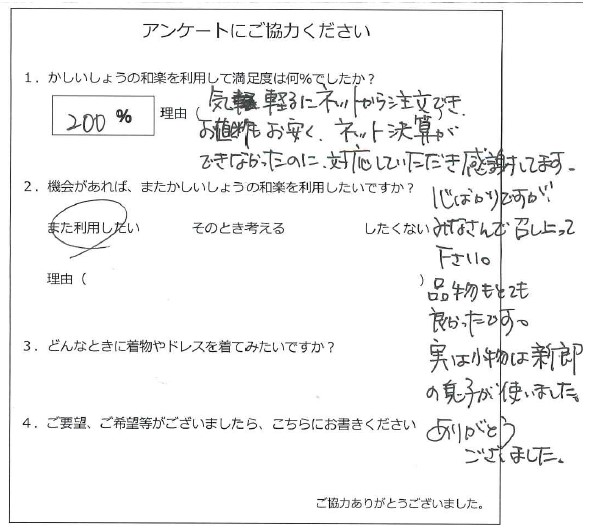 アンケートにご協力ください
1．かしいしょうの和楽を利用して満足度は何%でしたか？
200 %
理由（
気軽るにネットから注文でき、
お値段もお安く、ネット決算が
できなかったのに、対応していただき感謝してます。
2．機会があれば、またかしいしょうの和楽を利用したいですか？
また利用したい　そのとき考える　したくない
理由（　）
心ばかりですが、
みなさんで召し上って
下さい。
品物もとても
良かったです。
実は小物は新郎
の息子が使いました。
ありがとう
ございました。
3．どんなときに着物やドレスを着てみたいですか？
4．ご要望、ご希望等がございましたら、こちらにお書きください
ご協力ありがとうございました。